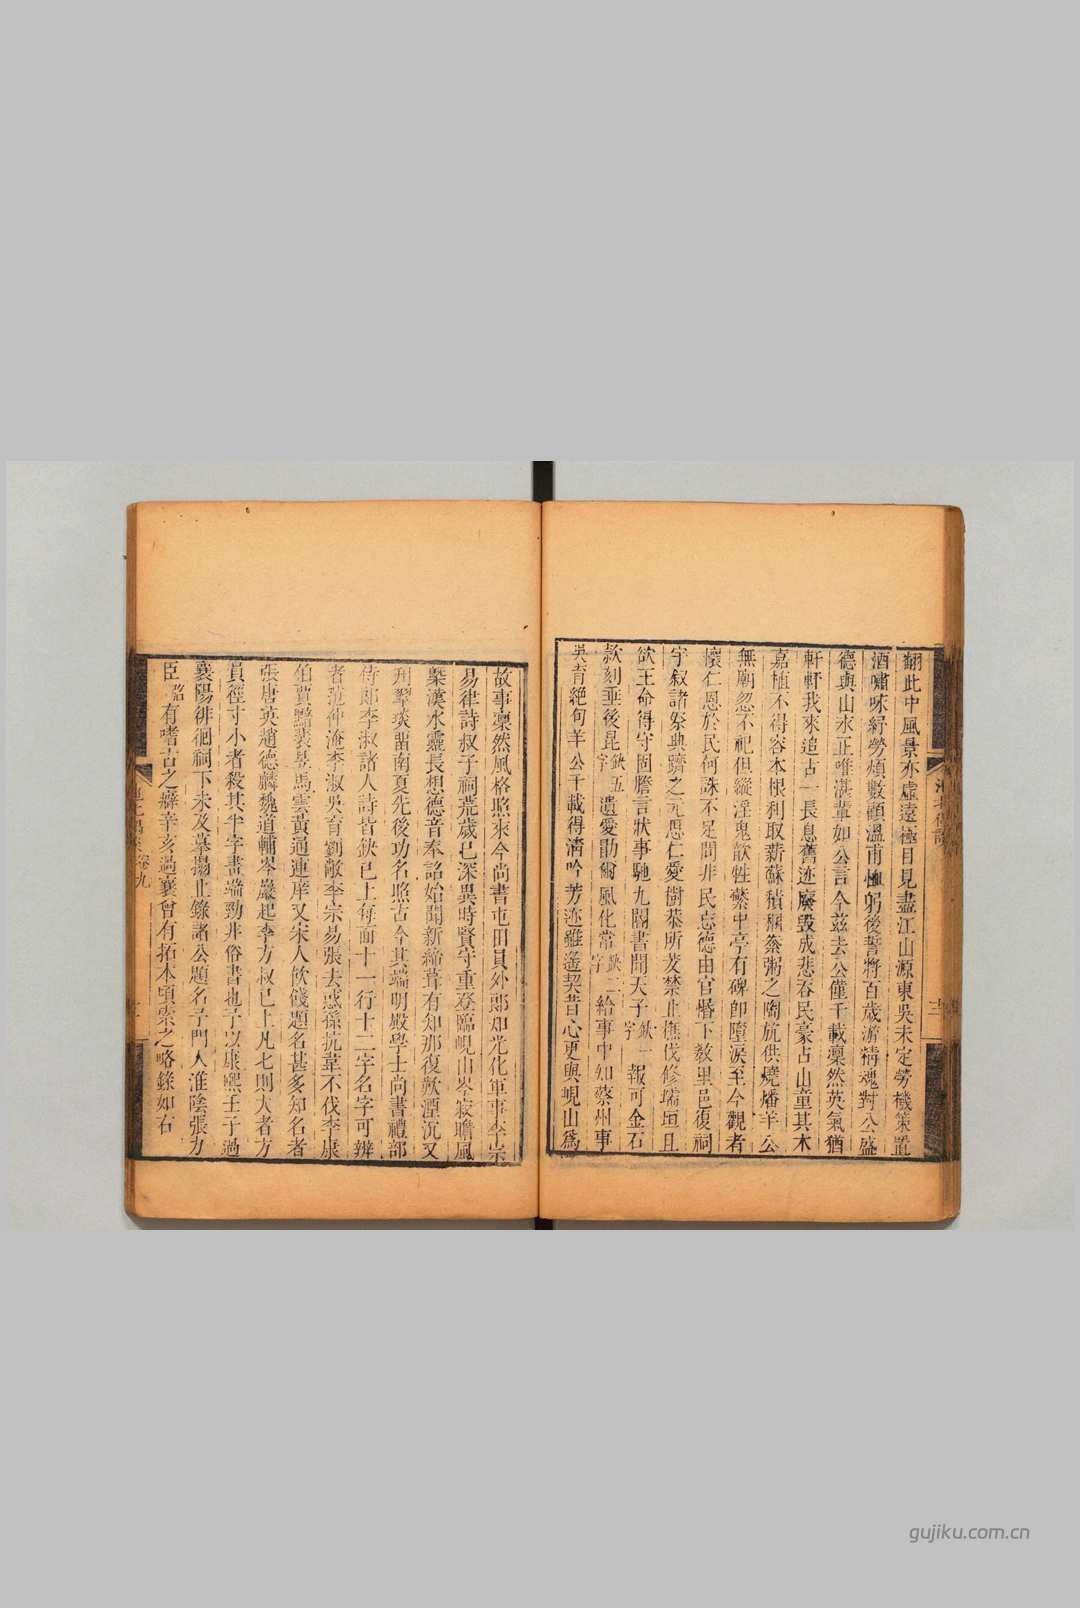 翻此中風景亦虛遠極目見盡江山源東吳未定勞機策置
酒嘯咏紓勞煩數顧溫甫慟躬後誓將百歲游精魂對公盛
德與山水正唯湛輩如公言今茲去公僅千載凜然英氣猶
軒軒我來追古一長息舊迹廢毀成悲吞民豪占山童其木
嘉植不得容本根利取薪蘇積稱蔡粥之陶旊供燒燔羊公
無廟忽不祀但縱淫鬼歆牲蘩中亭有碑卽墮淚至今觀者
懷仁恩於民何誅不足問非民忘德由官惛下教里邑復祠
宇叙諸祭典躋之元思仁愛樹恭所茇禁止撫伐修壖垣且
欲王命得守固膽言狀事馳九閽書聞天子缺一字報可金石
款刻垂後昆缺五字遺愛勖爾風化常缺二字給事中知蔡州事
吳育絕句羊公千載得淸吟芳迹雖遙契昔心更與峴山爲
故事凜然風格照來今尚書屯田員外郞知光化軍事李宗
易律詩叔子祠荒歲已深異時賢守重登臨峴山岑寂瞻風
槩漢水靈長想德音奉詔始聞新締葺有知那復歎湮沉又
刋翠琰留南夏先後功名照古今其端明殿學士尚書禮部
侍郞李淑諸人詩皆缺已上每面十一行十二字名字可辨
者范仲淹李淑吳育劉敞李宗易張去惑孫抗葦不伐李康
伯賈黯裴煜馬雲黃通連庠又宋人飲餞題名甚多知名者
張唐英趙德麟魏道輔岑巖起李方叔已上凡七則大者方
員徑寸小者殺其半字畫端勁非俗書也予以康熙壬子過
襄陽徘徊祠下未及摹搨止錄諸公題名予門人淮陰張力
臣弨有嗜古之癖辛亥過襄曾有拓本頃索之略錄如右
卷九
gujiku.com.cn